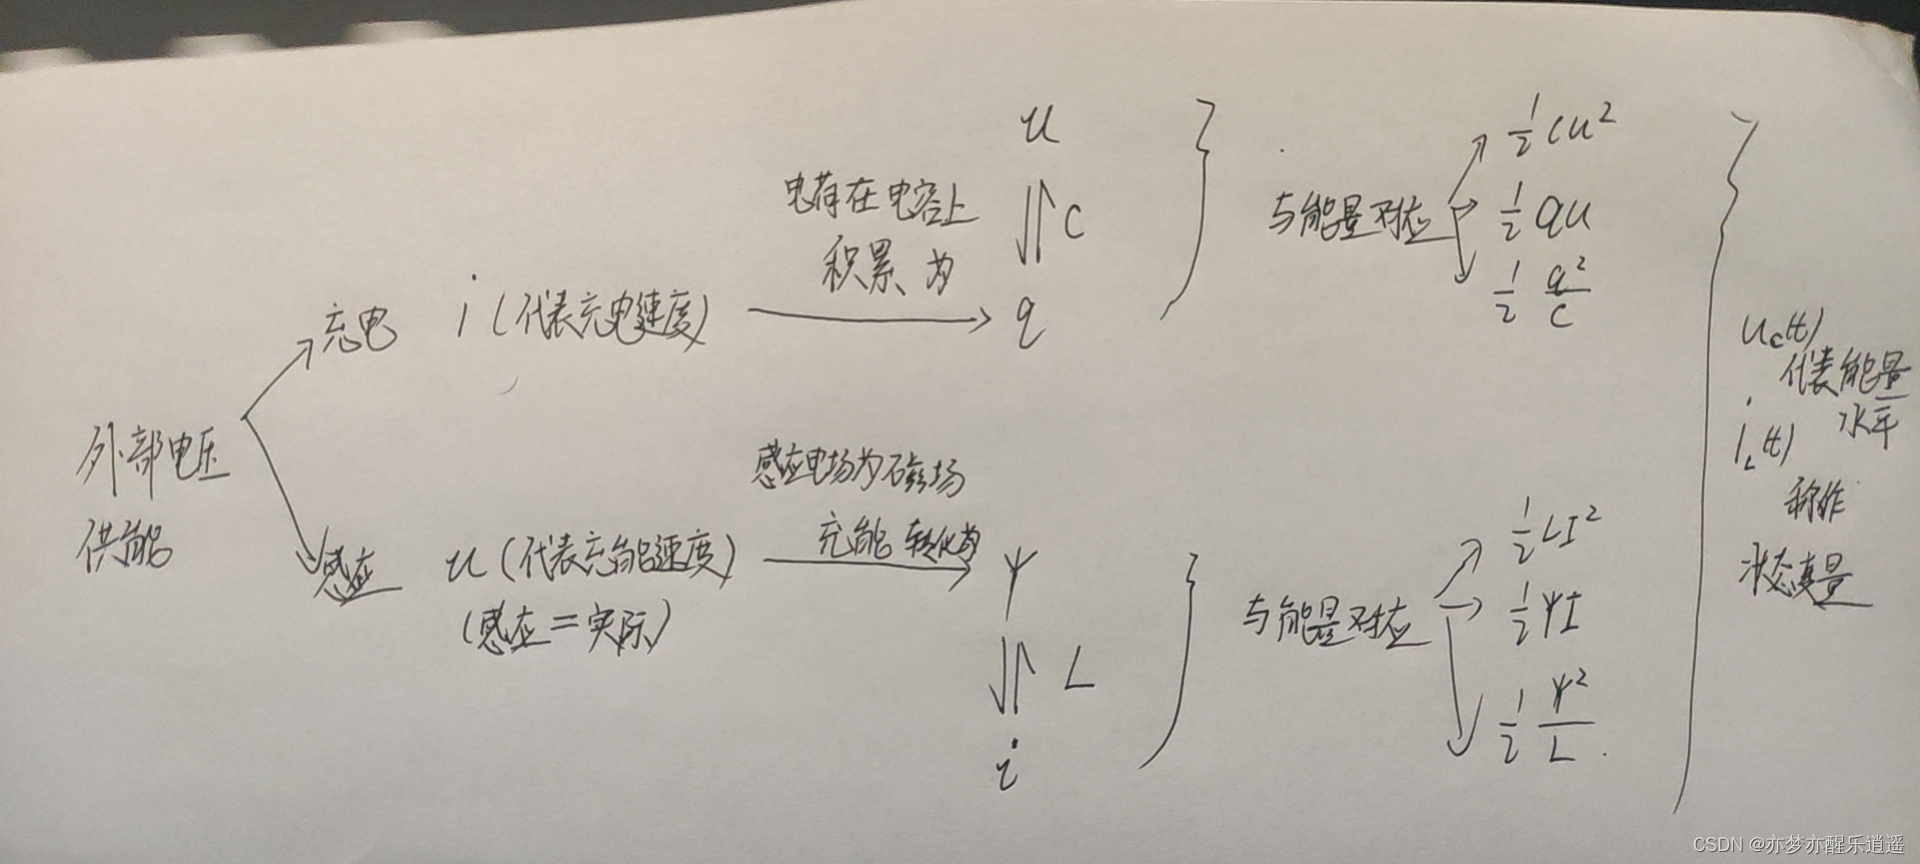 外部电压
供能
充电 i (代表充电速度)
电荷在电容上
积累为
u
C
q
与能量对应
½Cu²
½qu
½ q²/C
感应 u (代表充能速度)
(感应=实际)
感应电场为磁场
充能 转化为
ψ
L
i
与能量对应
½LI²
½ψI
½ ψ²/L
u_C(t)
代表能量
水平
i_L(t)
称作
状态变量
CSDN @亦梦亦醒乐逍遥